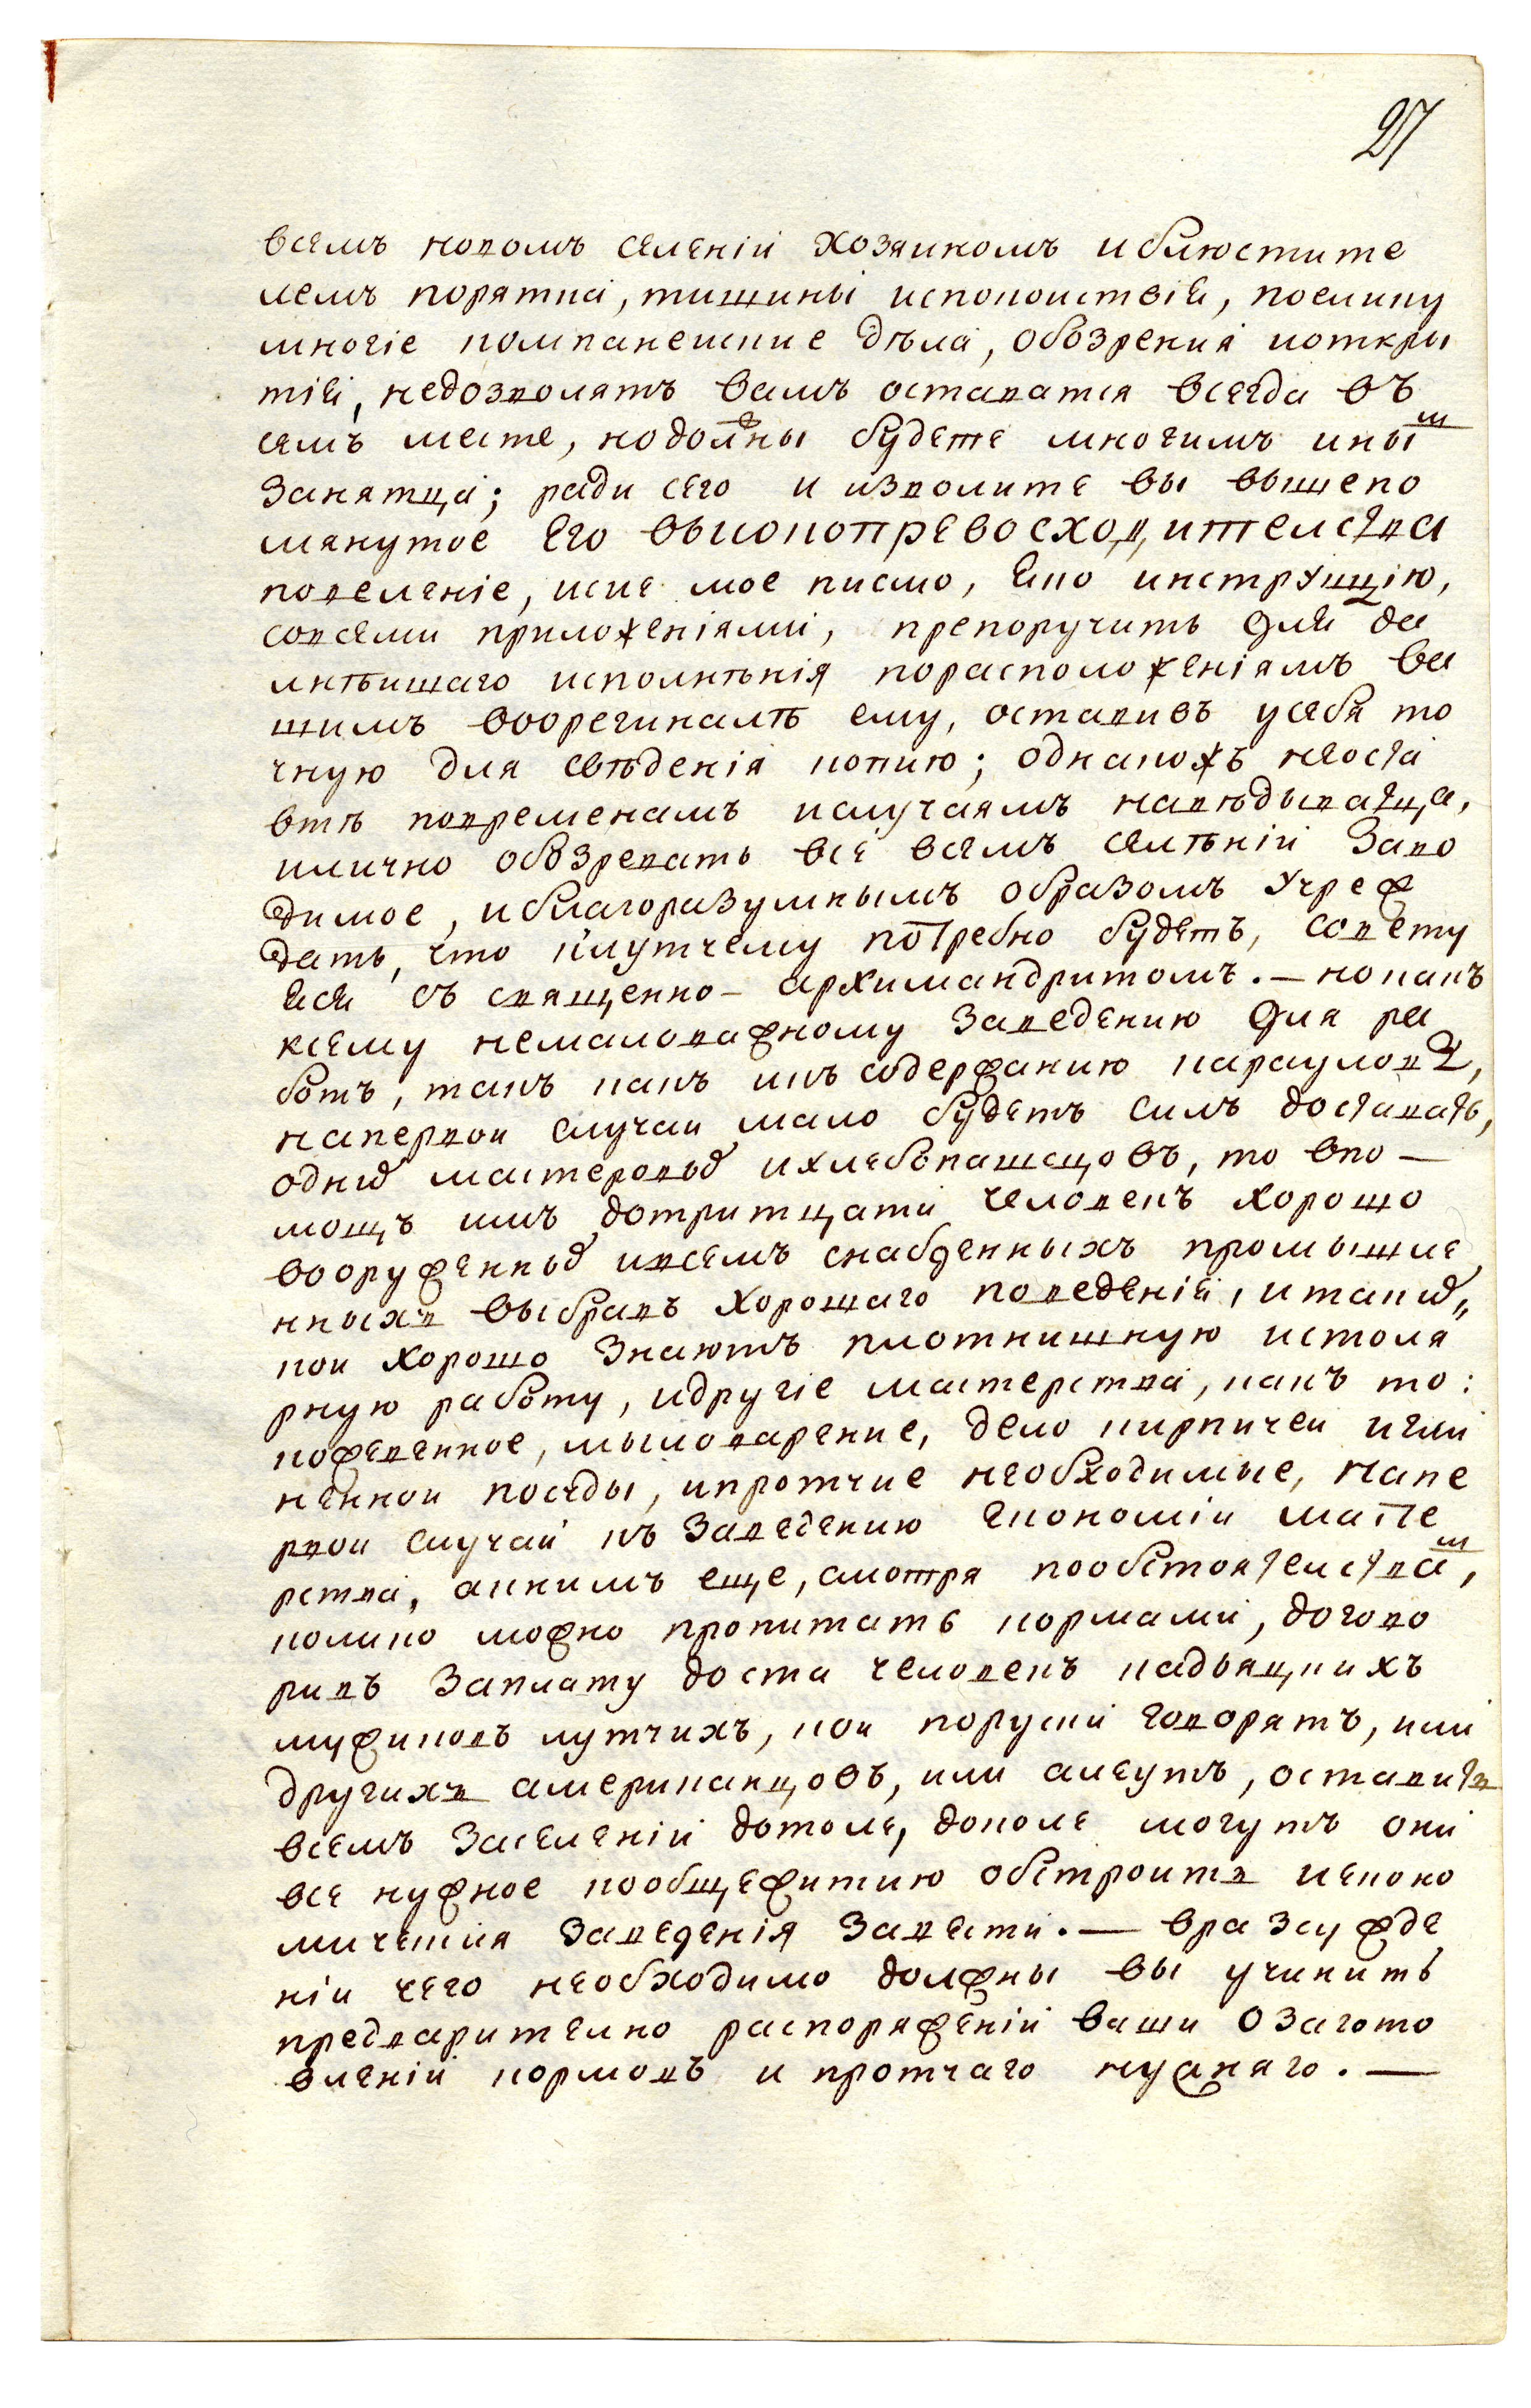 27
всемъ новомъ селеніи хозяиномъ и блюстите
лемъ порятка, тишины испокоиствія, поелику
многіе компанеиские дѣла, обозрения иоткры
тия, недозволятъ вамъ оставатся всегда въ
семъ месте, нодолжны будете многимъ инымъ
занятца; ради сего и изволите вы вышепо
мянутое Его высокопревосходителства
повеление, исие мое писмо, яко инструкцію,
совсеми приложеніями, препоручить для да
лнѣишаго исполнѣнія порасположеніямъ ва
шимъ воорегиналѣ ему, оставивъ усебя то
чную для свѣденія копию; однакожъ неоста
втѣ повременамъ ислучаямъ навѣдыватца,
илично обозревать все всемъ селѣніи заво
димое, иблагоразумнымъ образомъ учреж
дать, что клутчему потребно будетъ, совету
яся съ священно-архимандритомъ. — но какъ
ксему немаловажному заведению для ра
ботъ, такъ какъ икъ содержанию карауловъ,
напервои случаи мало будетъ силъ доставать,
однихъ мастеровыхъ ихлебопашецовъ, то впо —
мощъ имъ дотритцати человекъ хорошо
вооруженныхъ ивсемъ снабденныхъ промышле
нныхъ выбравъ хорошаго поведенія, итакихъ,
кои хорошо знаютъ плотнишную истоля
рную работу, идругіе мастерства, какъ то:
кожевенное, мыловарение, дело кирпичеи игли
неннои посуды, ипротчие необходимые, напе
рвои случаи къ заведению економіи масте
рства, акнимъ еще, смотря пообстоятелствамъ,
колико можно пропитать кормами, догово
ривъ заплату доста человекъ кадьяцкихъ
мужиковъ лутчихъ, кои поруски говорятъ, или
другихъ американцовъ, или алеутъ, оставить
всемъ заселеніи дотоле, доколе могутъ они
все нужное кообщежитию обстроить иеконо
мическия заведенія завести. — вразсужде
ніи чего необходимо должны вы учинить
предварително распоряженіи ваши озагото
вленіи кормовъ и протчаго нужнаго. —